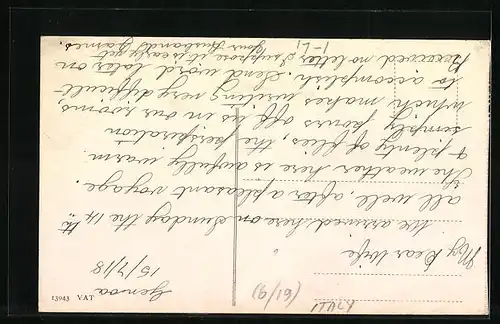 Genoa
15/7/18
My Dear Wife
We arrived here on Sunday the 14th
all well, after a pleasant voyage.
The weather here is awfully warm
& plenty of flies, the perspiration
simply pours off us in our rooms,
which makes writing very difficult
to accomplish. Send word later on
Received no letter I suppose it is early yet
Your Husband James.
13943 VAT